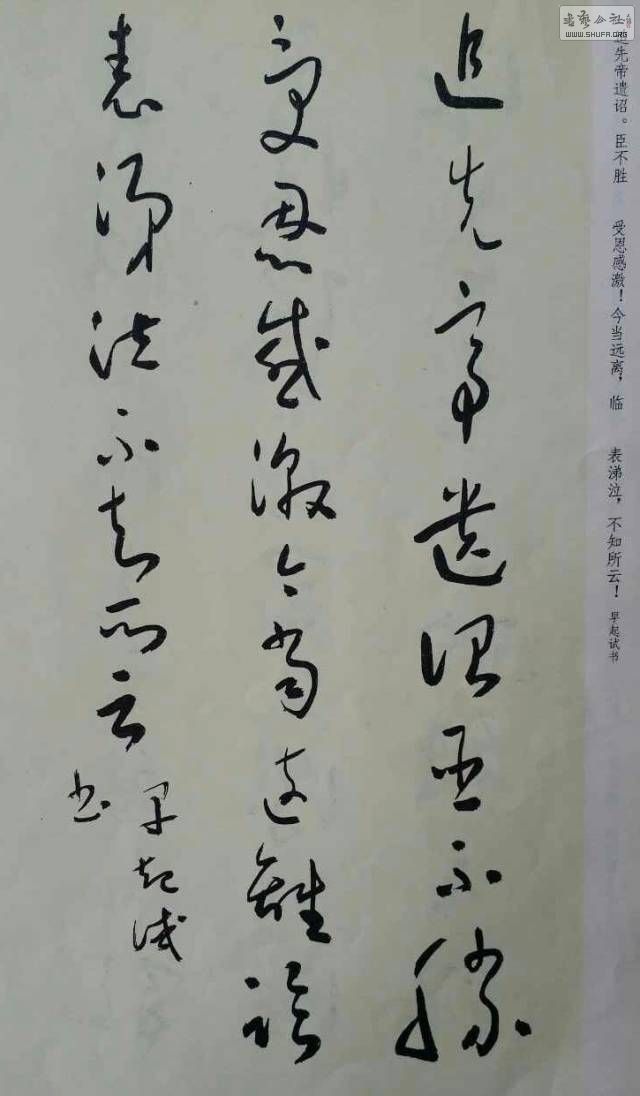 书艺公社
WWW.SHUFA.ORG
追先帝遗诏。臣不胜 受恩感激！今当远离，临 表涕泣，不知所云！ 早起试书
追先帝遺詔臣不勝
受恩感激今當遠離臨
表涕泣不知所云
早起試
書